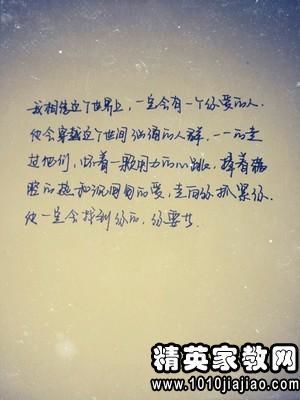 我相信这个世界上,一定会有一个你爱的人.
他会穿越这个世间汹涌的人群,一一的走
过他们,怀着一颗用力的心跳,捧着满
腔的热和沉甸甸的爱,走向你抓紧你.
他一定会找到你的,你要等.
精英家教网
www.1010jiajiao.com